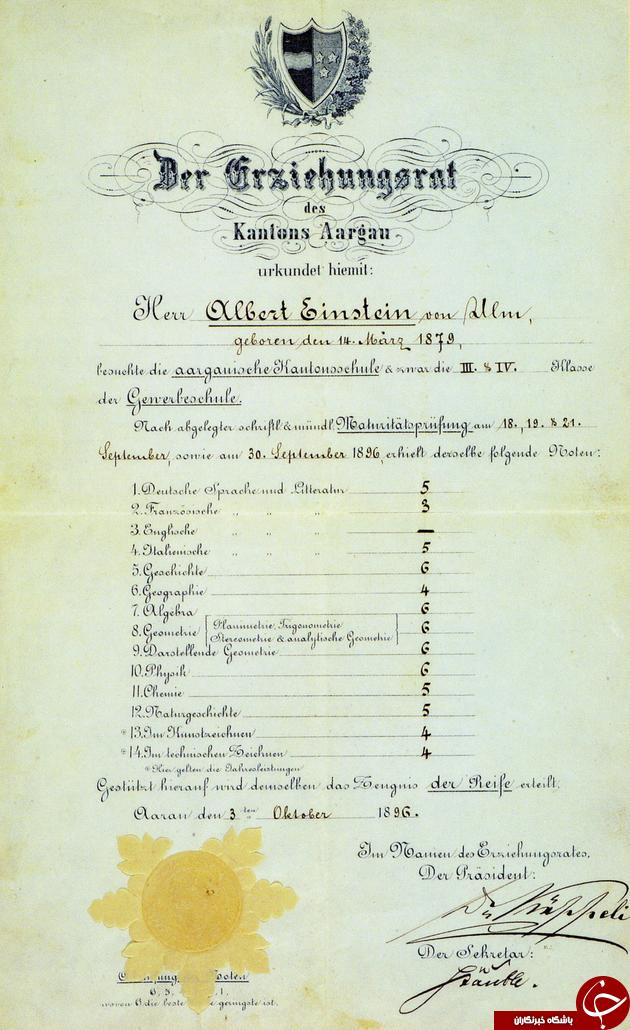 Der Erziehungsrat
des
Kantons Aargau
urkundet hiemit:
Herr Albert Einstein von Ulm,
geboren den 14. März 1879,
besuchte die aargauische Kantonsschule & zwar die III. & IV. Klasse
der Gewerbeschule.
Nach abgelegter schriftl. & mündl. Maturitätsprüfung am 18., 19. & 21.
September, sowie am 30. September 1896, erhielt derselbe folgende Noten:
1. Deutsche Sprache und Litteratur 5
2. Französische „ „ „ 3
3. Englische „ „ „ —
4. Italienische „ „ „ 5
5. Geschichte 6
6. Geographie 4
7. Algebra 6
8. Geometrie [Planimetrie, Trigonometrie
Stereometrie & analytische Geometrie] 6
9. Darstellende Geometrie 6
10. Physik 6
11. Chemie 5
12. Naturgeschichte 5
*13. Im Kunstzeichnen 4
*14. Im technischen Zeichnen 4
*Hier gelten die Jahresleistungen
Gestützt hierauf wird demselben das Zeugnis der Reife erteilt.
Aarau den 3ten Oktober 1896.
Im Namen des Erziehungsrates,
Der Präsident:
Dr. Käppeli
Der Sekretär:
Stäuble.
Noten
6, 5,
wovon 6 die beste geringste ist.
باشگاه خبرنگاران